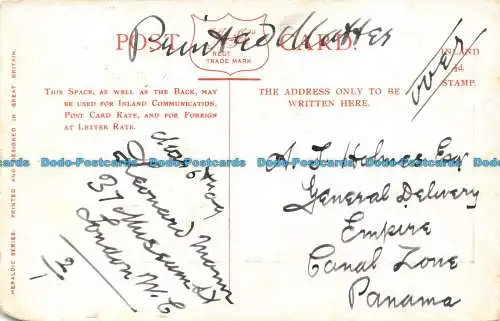 Printed Matter
POST CARD.
REGD
TRADE MARK
over
INLAND
½d.
STAMP.
THIS SPACE, AS WELL AS THE BACK, MAY
BE USED FOR INLAND COMMUNICATION,
POST CARD RATE, AND FOR FOREIGN
AT LETTER RATE.
THE ADDRESS ONLY TO BE
WRITTEN HERE.
HERALDIC SERIES. PRINTED AND DESIGNED IN GREAT BRITAIN.
Leonard Mann
37 Museum St
London W.C
2/1
A. L. Holmes Esq
General Delivery
Empire
Canal Zone
Panama
Dodo-Postcards Dodo-Postcards Dodo-Postcards Dodo-Postcards Dodo-Postcards
Dodo-Postcards Dodo-Postcards Dodo-Postcards Dodo-Postcards Dodo-Postcards